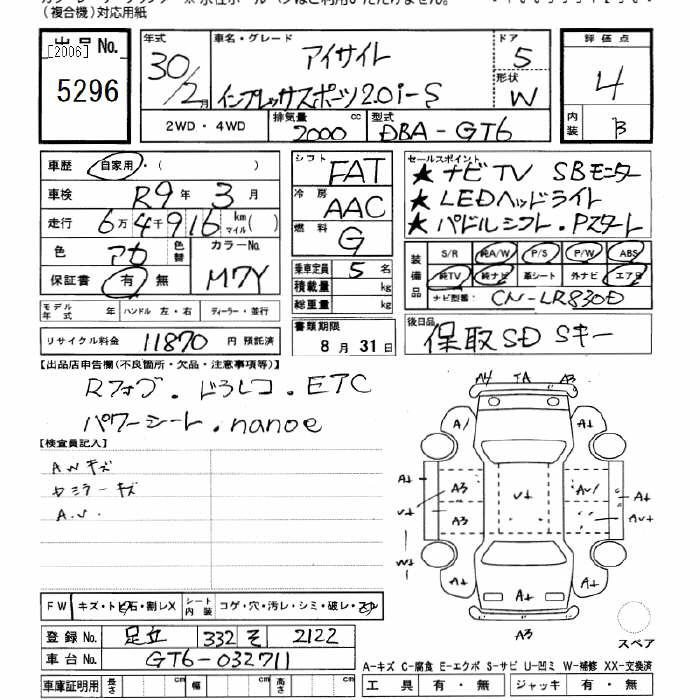 (複合機)対応用紙
出品No.
[2006]
5296
年式
30/2月
車名・グレード
アイサイト
インプレッサスポーツ2.0i-S
ドア
5
形状
W
評価点
4
内装
B
2WD・4WD
排気量
2000 cc
型式
DBA-GT6
車歴 自家用・( )
車検 R9年3月
走行 6万4千916 km マイル( )
色 アカ 色替
カラーNo.
M7Y
保証書 有・無
モデル年式 年 ハンドル 左・右 ディーラー・並行
リサイクル料金 11870 円 預託済
シフト FAT
冷房 AAC
燃料 G
乗車定員 5 名
積載量 kg
総重量 kg
書類期限
8月31日
セールスポイント
★ナビTV SBモニター
★LEDヘッドライト
★パドルシフト.Pスタート
装備品
S/R 純A/W P/S P/W ABS
純TV 純ナビ 革シート 外ナビ エアB
ナビ型番 CN-LR830D
後日品
保取SD Sキー
【出品店申告欄(不良箇所・欠品・注意事項等)】
Rフォグ.ドラレコ.ETC
パワーシート.nanoe
【検査員記入】
AWキズ
A4 TA A3
A3 A3
FW キズ・トビ石・割レX
シート内装 コゲ・穴・汚レ・シミ・破レ・スレ
登録No. 足立 332 そ 2122
車台No. GT6-032711
スペア
A-キズ C-腐食 E-エクボ S-サビ U-凹ミ W-補修 XX-交換済
車庫証明用 長さ cm 幅 cm 高さ cm
工具 有・無 ジャッキ 有・無